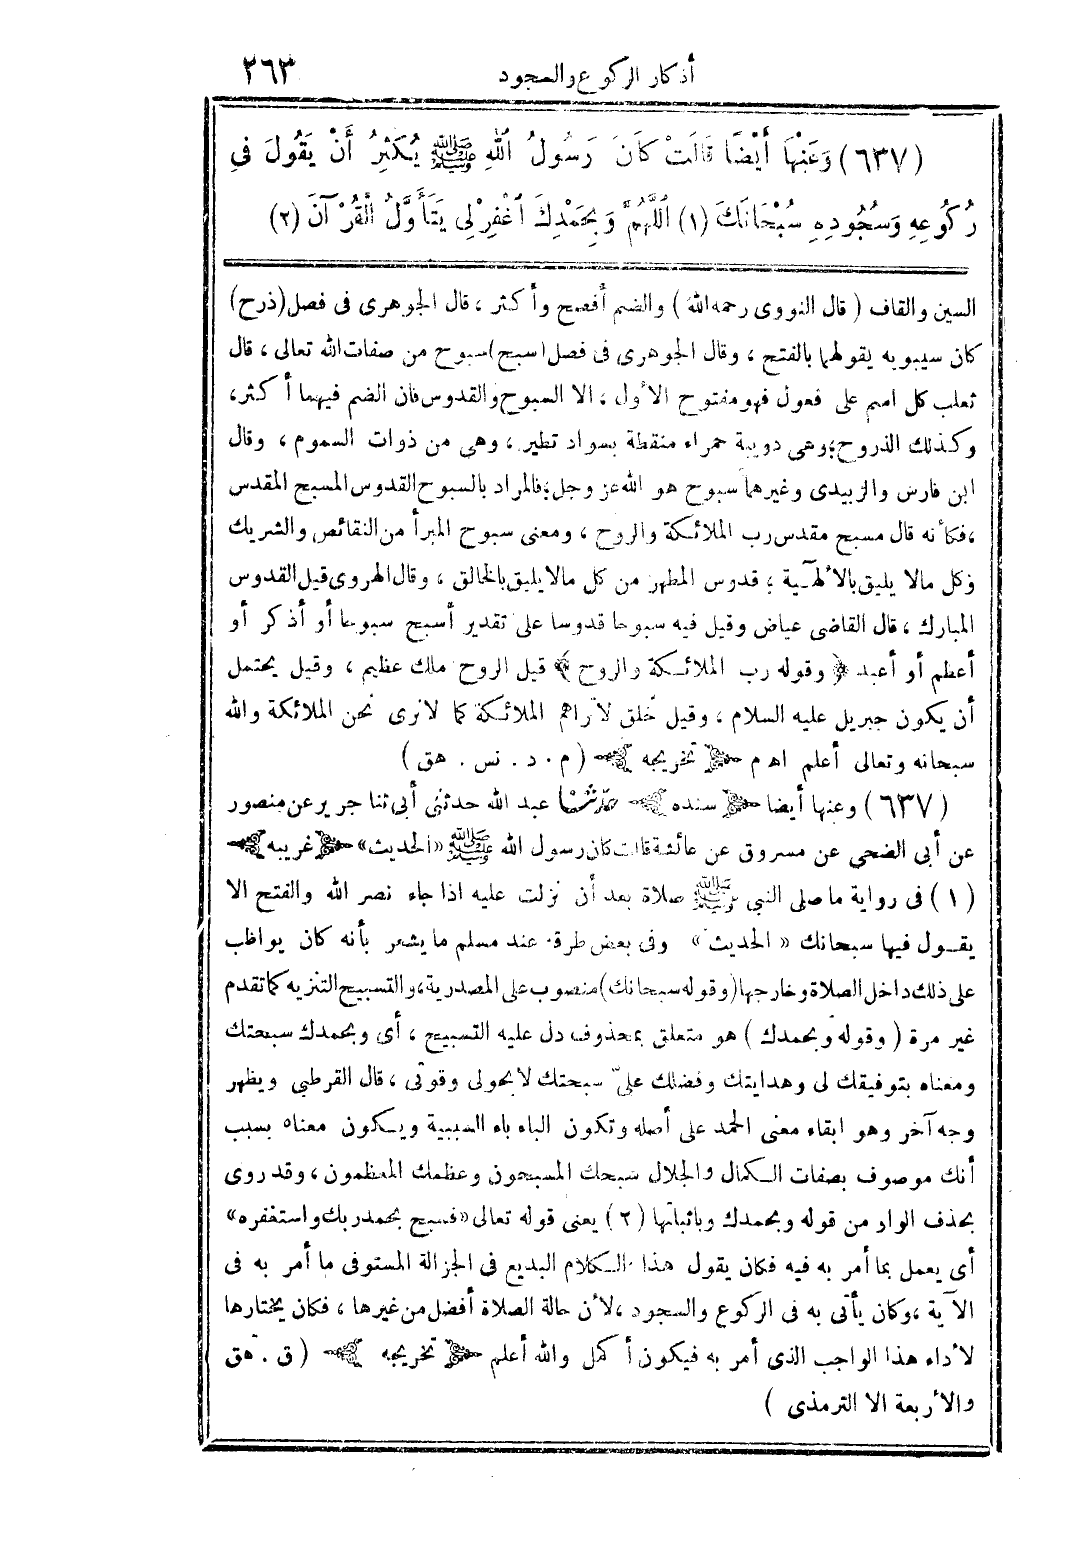 أذكار الركوع والسجود ٢٦٣
(٦٣٧) وَعَنْهَا أَيْضًا قَالَتْ كَانَ رَسُولُ اللهِ ﷺ يُكْثِرُ أَنْ يَقُولَ فِى
رُكُوعِهِ وَسُجُودِهِ سُبْحَانَكَ (١) اَللَّهُمَّ وَبِحَمْدِكَ اغْفِرْ لِى يَتَأَوَّلُ الْقُرْآنَ (٢)
السين والقاف ( قال النووى رحمه الله ) والضم أفصح وأكثر ، قال الجوهرى فى فصل (ذرح)
كان سيبويه يقولهما بالفتح ، وقال الجوهرى فى فصل (سبح) سبوح من صفات الله تعالى ، قال
ثعلب كل اسم على فعول فهو مفتوح الأول ، الا السبوح والقدوس فان الضم فيهما أكثر،
وكذلك الذروح؛ وهى دويبة حمراء منقطة بسواد تطير ، وهى من ذوات السموم ، وقال
ابن فارس والزبيدى وغيرهما سبوح هو الله عز وجل؛ فالمراد بالسبوح القدوس المسبح المقدس
،فكأنه قال مسبح مقدس رب الملائكة والروح ، ومعنى سبوح المبرأ من النقائص والشريك
وكل مالا يليق بالألهـية ؛ قدوس المطهر من كل مالا يليق بالخالق ، وقال الهروى قيل القدوس
المبارك ، قال القاضى عياض وقيل فيه سبوحا قدوسا على تقدير أسبح سبوحا أو أذكر أو
أعظم أو أعبد ﴿ وقوله رب الملائـكة والروح ﴾ قيل الروح ملك عظيم ، وقيل يحتمل
أن يكون جبريل عليه السلام ، وقيل خلق لا تراهم الملائكة كما لا نرى نحن الملائكة والله
سبحانه وتعالى أعلم اهـ م ﴿ تخريجه ﴾ ( م . د . نس . هق )
(٦٣٧) وعنها أيضا ﴿ سنده ﴾ حدثنا عبد الله حدثنى أبى ثنا جرير عن منصور
عن أبى الضحى عن مسروق عن عائشة قالت كان رسول الله ﷺ «الحديث» ﴿ غريبه ﴾
(١) فى رواية ما صلى النبى ﷺ صلاة بعد أن نزلت عليه اذا جاء نصر الله والفتح الا
يقـول فيها سبحانك « الحديث » وفى بعض طرقه عند مسلم ما يشعر بأنه كان يواظب
على ذلك داخل الصلاة وخارجها (وقوله سبحانك) منصوب على المصدرية، والتسبيح التنزيه كما تقدم
غير مرة ( وقوله وبحمدك ) هو متعلق بمحذوف دل عليه التسبيح ، أى وبحمدك سبحتك
ومعناه بتوفيقك لى وهدايتك وفضلك علىّ سبحتك لا بحولى وقوتى ، قال القرطبى ويظهر
وجه آخر وهو ابقاء معنى الحمد على أصله وتكون الباء باء السببية ويـكون معناه بسبب
أنك موصوف بصفات الـكمال والجلال سبحك المسبحون وعظمك المعظمون ، وقد روى
بحذف الواو من قوله وبحمدك وباثباتها (٢) يعنى قوله تعالى «فسبح بحمد ربك واستغفره»
أى يعمل بما أمر به فيه فكان يقول هذا الـكلام البديع فى الجزالة المستوفى ما أمر به فى
الآية ،وكان يأتى به فى الركوع والسجود ،لأن حالة الصلاة أفضل من غيرها ، فكان يختارها
لأداء هذا الواجب الذى أمر به فيكون أكمل والله أعلم ﴿ تخريجه ﴾ ( ق . هق
والأربعة الا الترمذى )